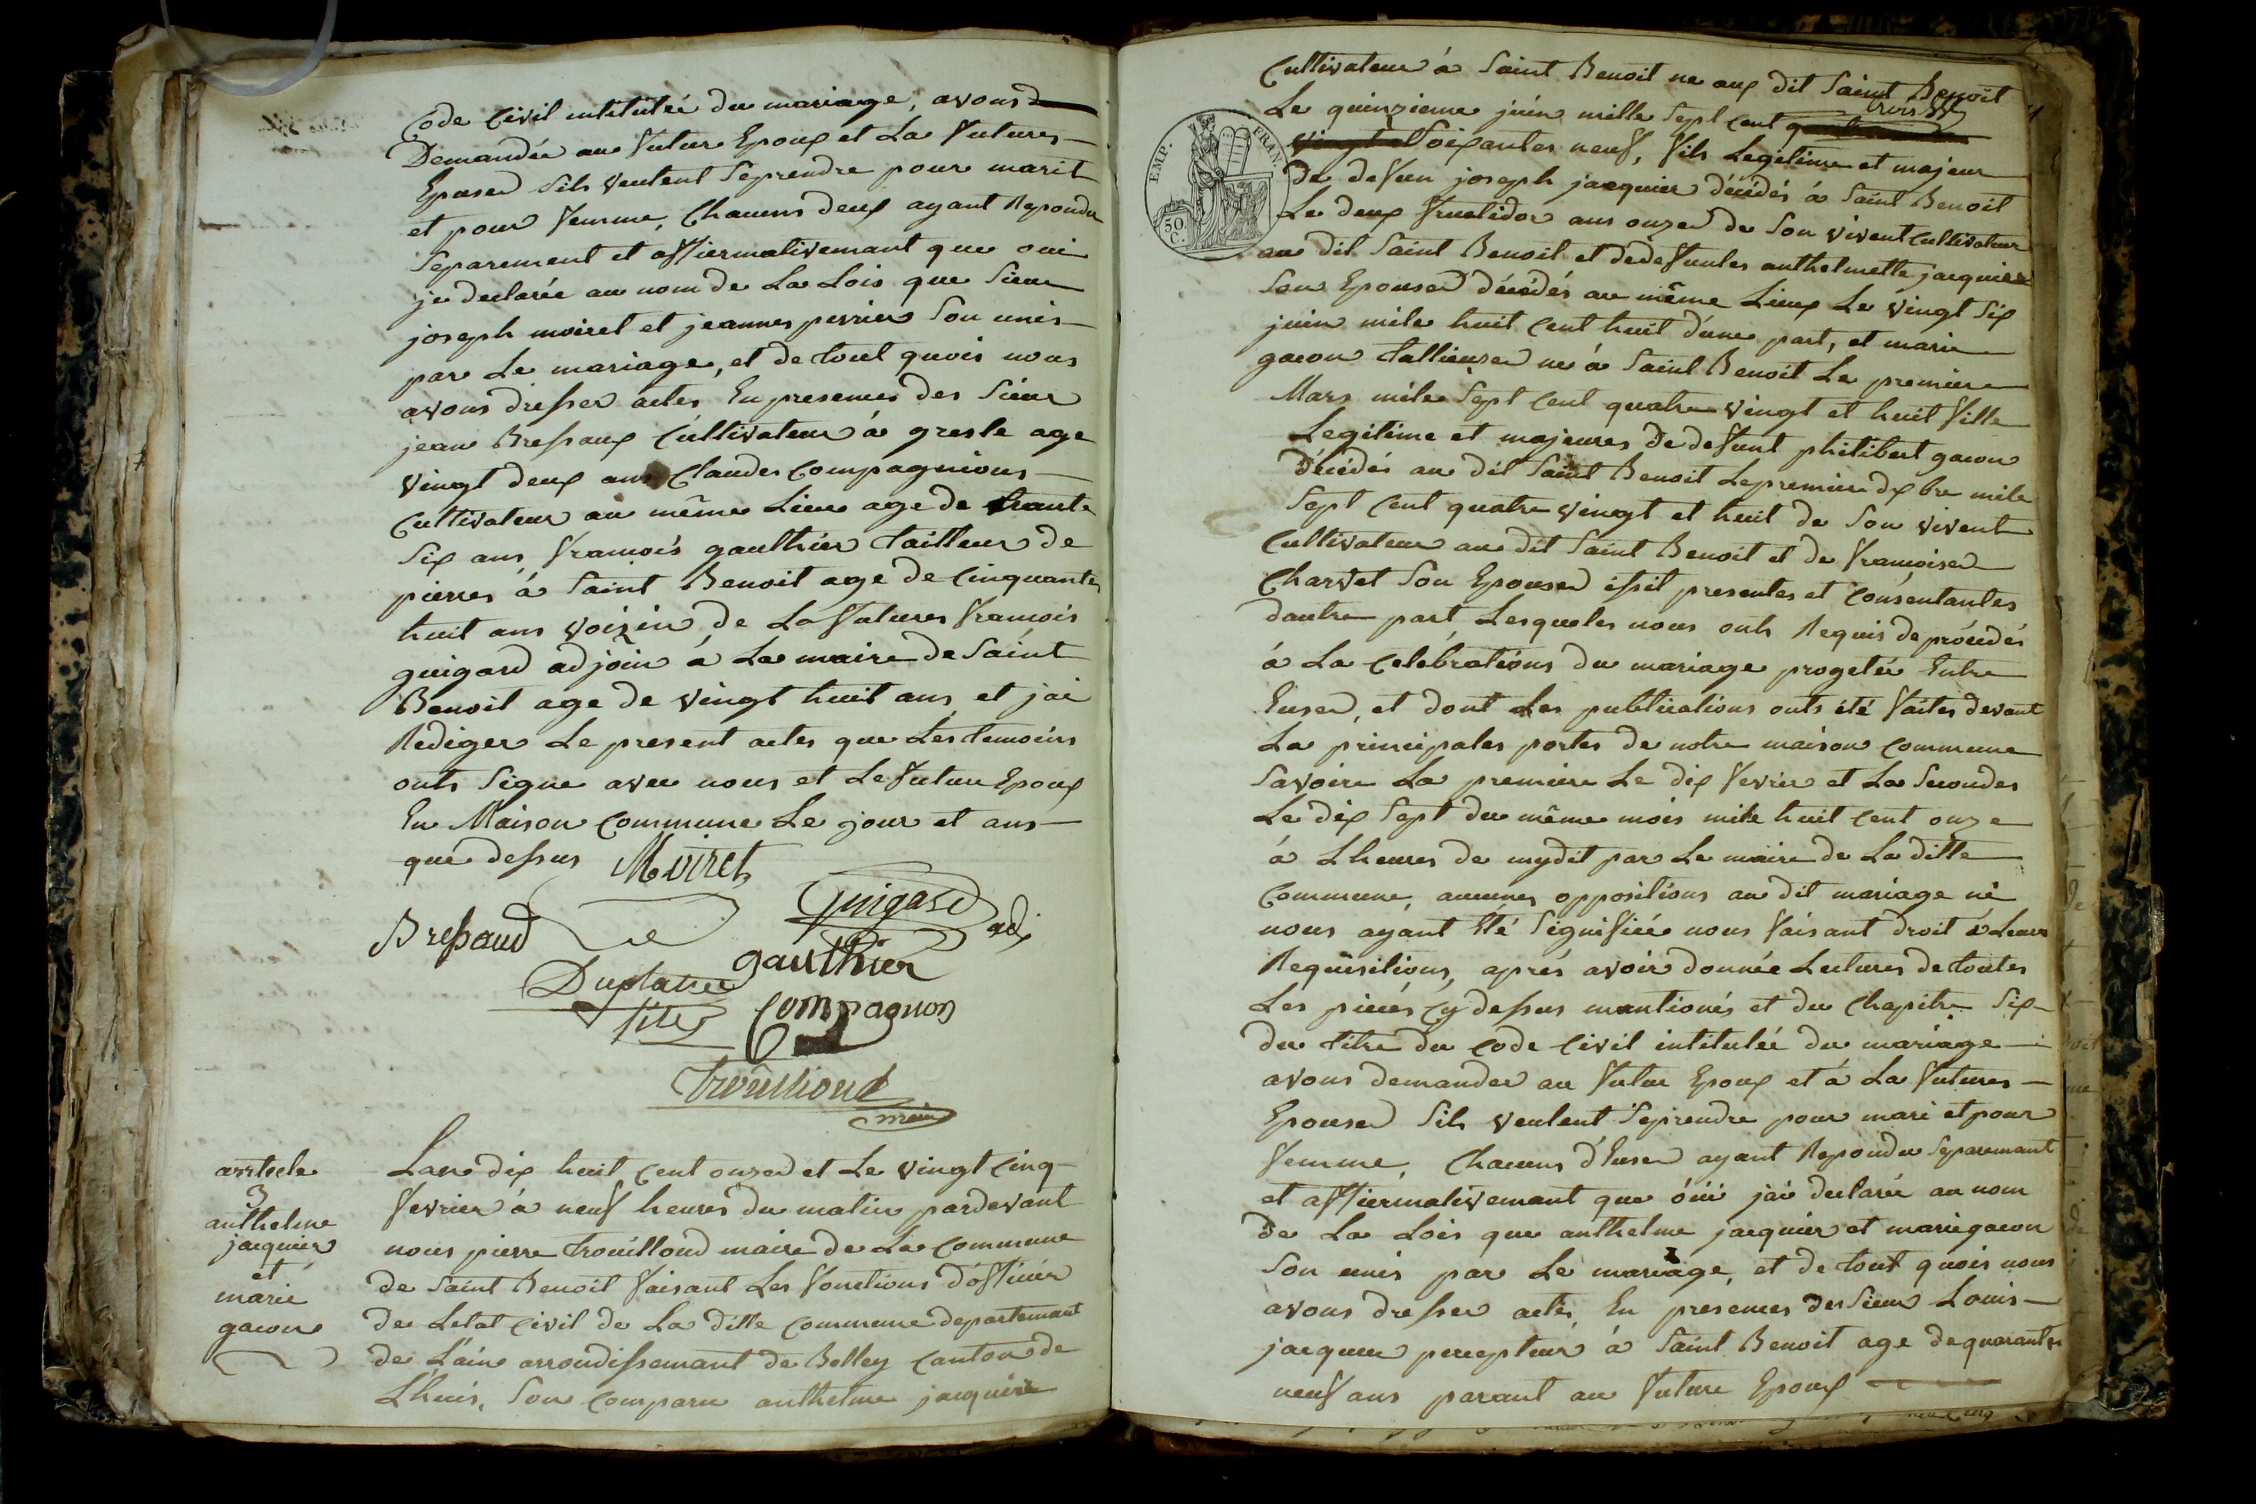 Code Civil intitulée du mariage, avons
Demandée au futur Epoux et La future
Epouse sils veulent seprendre pour marit
et pour femme, Chacuns deux ayant Repondu
separement et affiermativemant que oui
je declarée au nom de La Lois que sieur
joseph moiret et jeannes perrier son unis
par Le mariage, et de tout quois nous
avons dresser actes En presences des sieur
jean Bressaux Cultivateur à gresle age
vingt deux ans Claudes Compagnions
Cultivateur au même Lieux age de trante
six ans, francois gaulthier tailleur de
pierres à Saint Benoit age de Cinquante
huit ans voizin de La futures francois
guigard adjoin à La maire de Saint
Benoit age de vingt huit ans et jai
Rediger Le present actes que Les temoins
onts signe avec nous et Le futur Epoux
En Maison Commune Le jour et ans
que dessus Moiret
Guigard adj
Bressaud
gauthier
Duplatre
Compagnon
Trouilloud
maire
article
3
anthelme
jacquier
et
marie
gacon
Lan dix huit Cent onze et Le vingt Cinq
fevrier à neuf heures du matin pardevant
nous pierre trouilloud maire de La Commune
de Saint Benoit faisant Les fonctions d'officier
de Letat Civil de La ditte Commune departemant
de L'ain arrondissemant de Belley Canton de
Lhuis, Son Comparu anthelme jacquier
Cultivateur à Saint Benoit ne aux dit Saint Benoit
EMP. FRAN.
50 C.
Le quinzieme juin mille sept Cent
trois
vingt Soixantes neuf, fils Legetime et majeur
De defun joseph jacquier décédés à Saint Benoit
Le deux fructidor ans onze de Son vivent Cultivateur
au dit Saint Benoit et dedefuntes anthelmette jacquier
Son Epouse décédés au même Lieux Le vingt six
juin mile huit Cent huit d'une part, et marie
gacon tallieuse ne à Saint Benoit Le premiere
Mars mile sept Cent quatre vingt et huit fille
Legitime et majeures De defunt philibert gacon
Décédés au dit Saint Benoit Lepremier dxbre mile
sept Cent quatre vingt et huit de Son vivent
Cultivateur au dit Saint Benoit et de francoise
Charvet Son Epouse issit presentes et Consentantes
dautre part Lesqueles nous onts Requis de procédés
à La Celébrations du mariage progetée Entre
Euse, et dont Les publications onts été faites devant
La principales portes de notre maison Commune
Savoire La premiere Le dix fevrier et La secondes
Le dix sept du même mois mile huit Cent onze
à Lheures de mydit par Le maire de La ditte
Commune, aucunes oppositions au dit mariage ni
nous ayant Eté Signifiée nous faisant droit à Leur
Requisitions, aprés avoir donnée Lectures de toutes
Les pieces Cy dessus mantionés et du Chapitre six
du titre du Code Civil intitulée du mariage
avons demander au futur Epoux et à La futures
Epouse sils veulent seprendre pour mari et pour
femme, Chacuns d'Euse ayant Repondu separemant
et affiermativemant que ouii jai declarée au nom
De La Lois que anthelme jacquier et marie gacon
Son unis par Le mariage, et de tout quois nous
avons dresser actes, En presences des sieur Louis
jacquier percepteur à Saint Benoit age de quarante
neuf ans parant au future Epoux